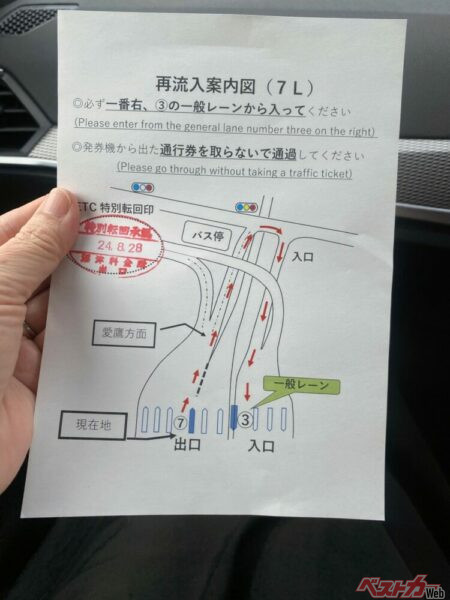 再流入案内図（７Ｌ）
◎必ず一番右、③の一般レーンから入ってください
(Please enter from the general lane number three on the right)
◎発券機から出た通行券を取らないで通過してください
(Please go through without taking a traffic ticket)
ETC 特別転回印
特別転回承認
24.8.28
出口
バス停
入口
愛鷹方面
一般レーン
現在地
⑦
③
出口
入口
ベストカーWeb